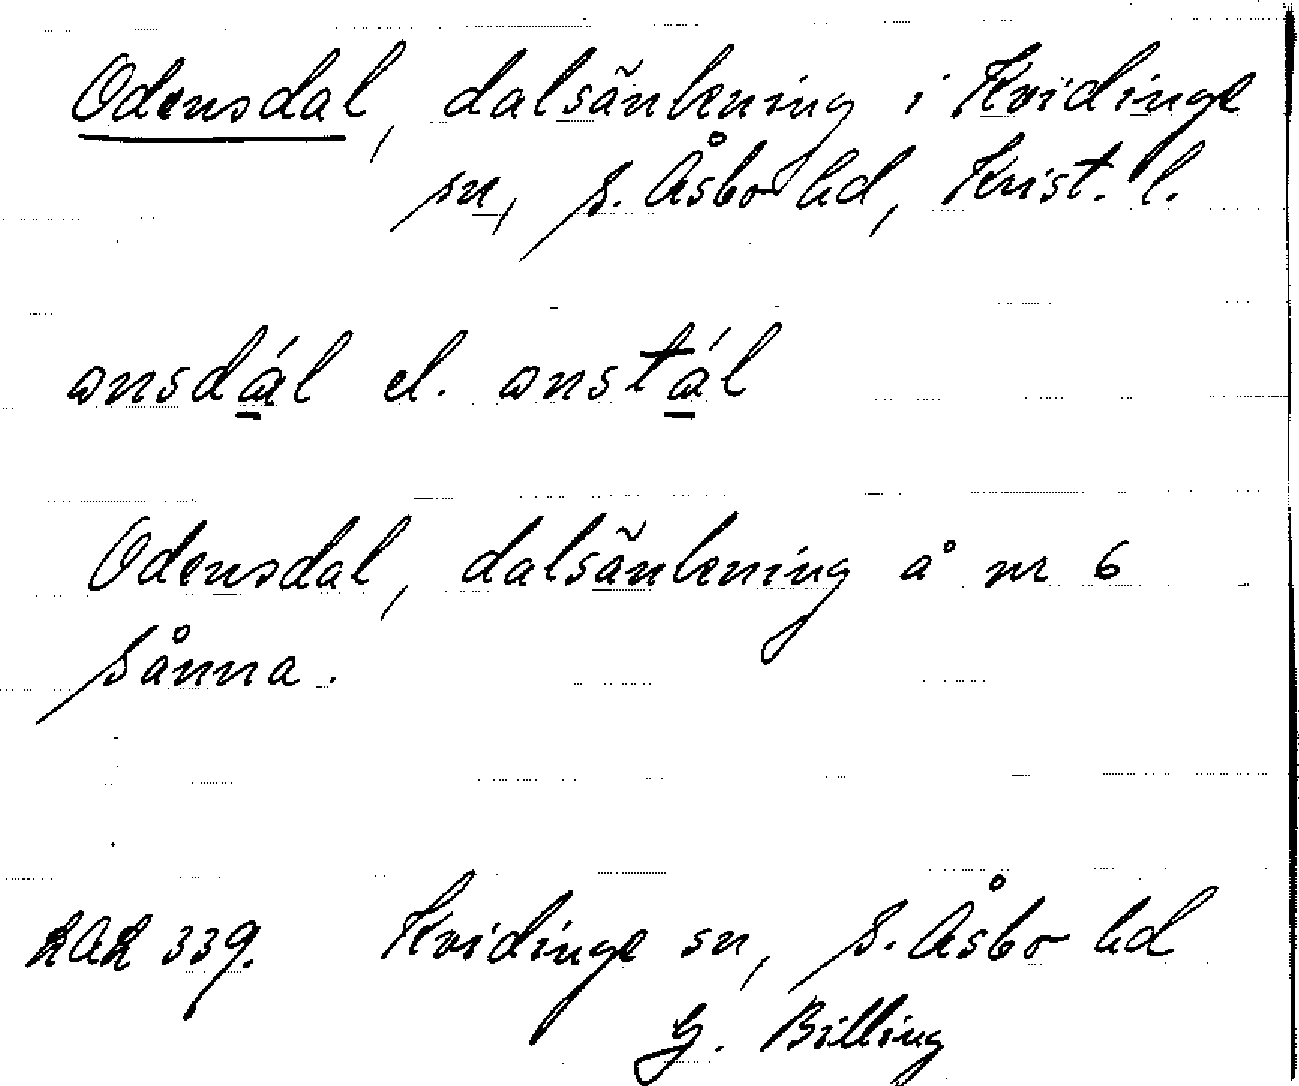 Odensdal, dalsänkning i Kvidinge
sn, S. Åsbo hd, Krist. l.
ɷnsdál el. ɷnstál
Odensdal, dalsänkning å nr 6
Sånna.
LAL 339. Kvidinge sn, S. Åsbo hd
G. Billing